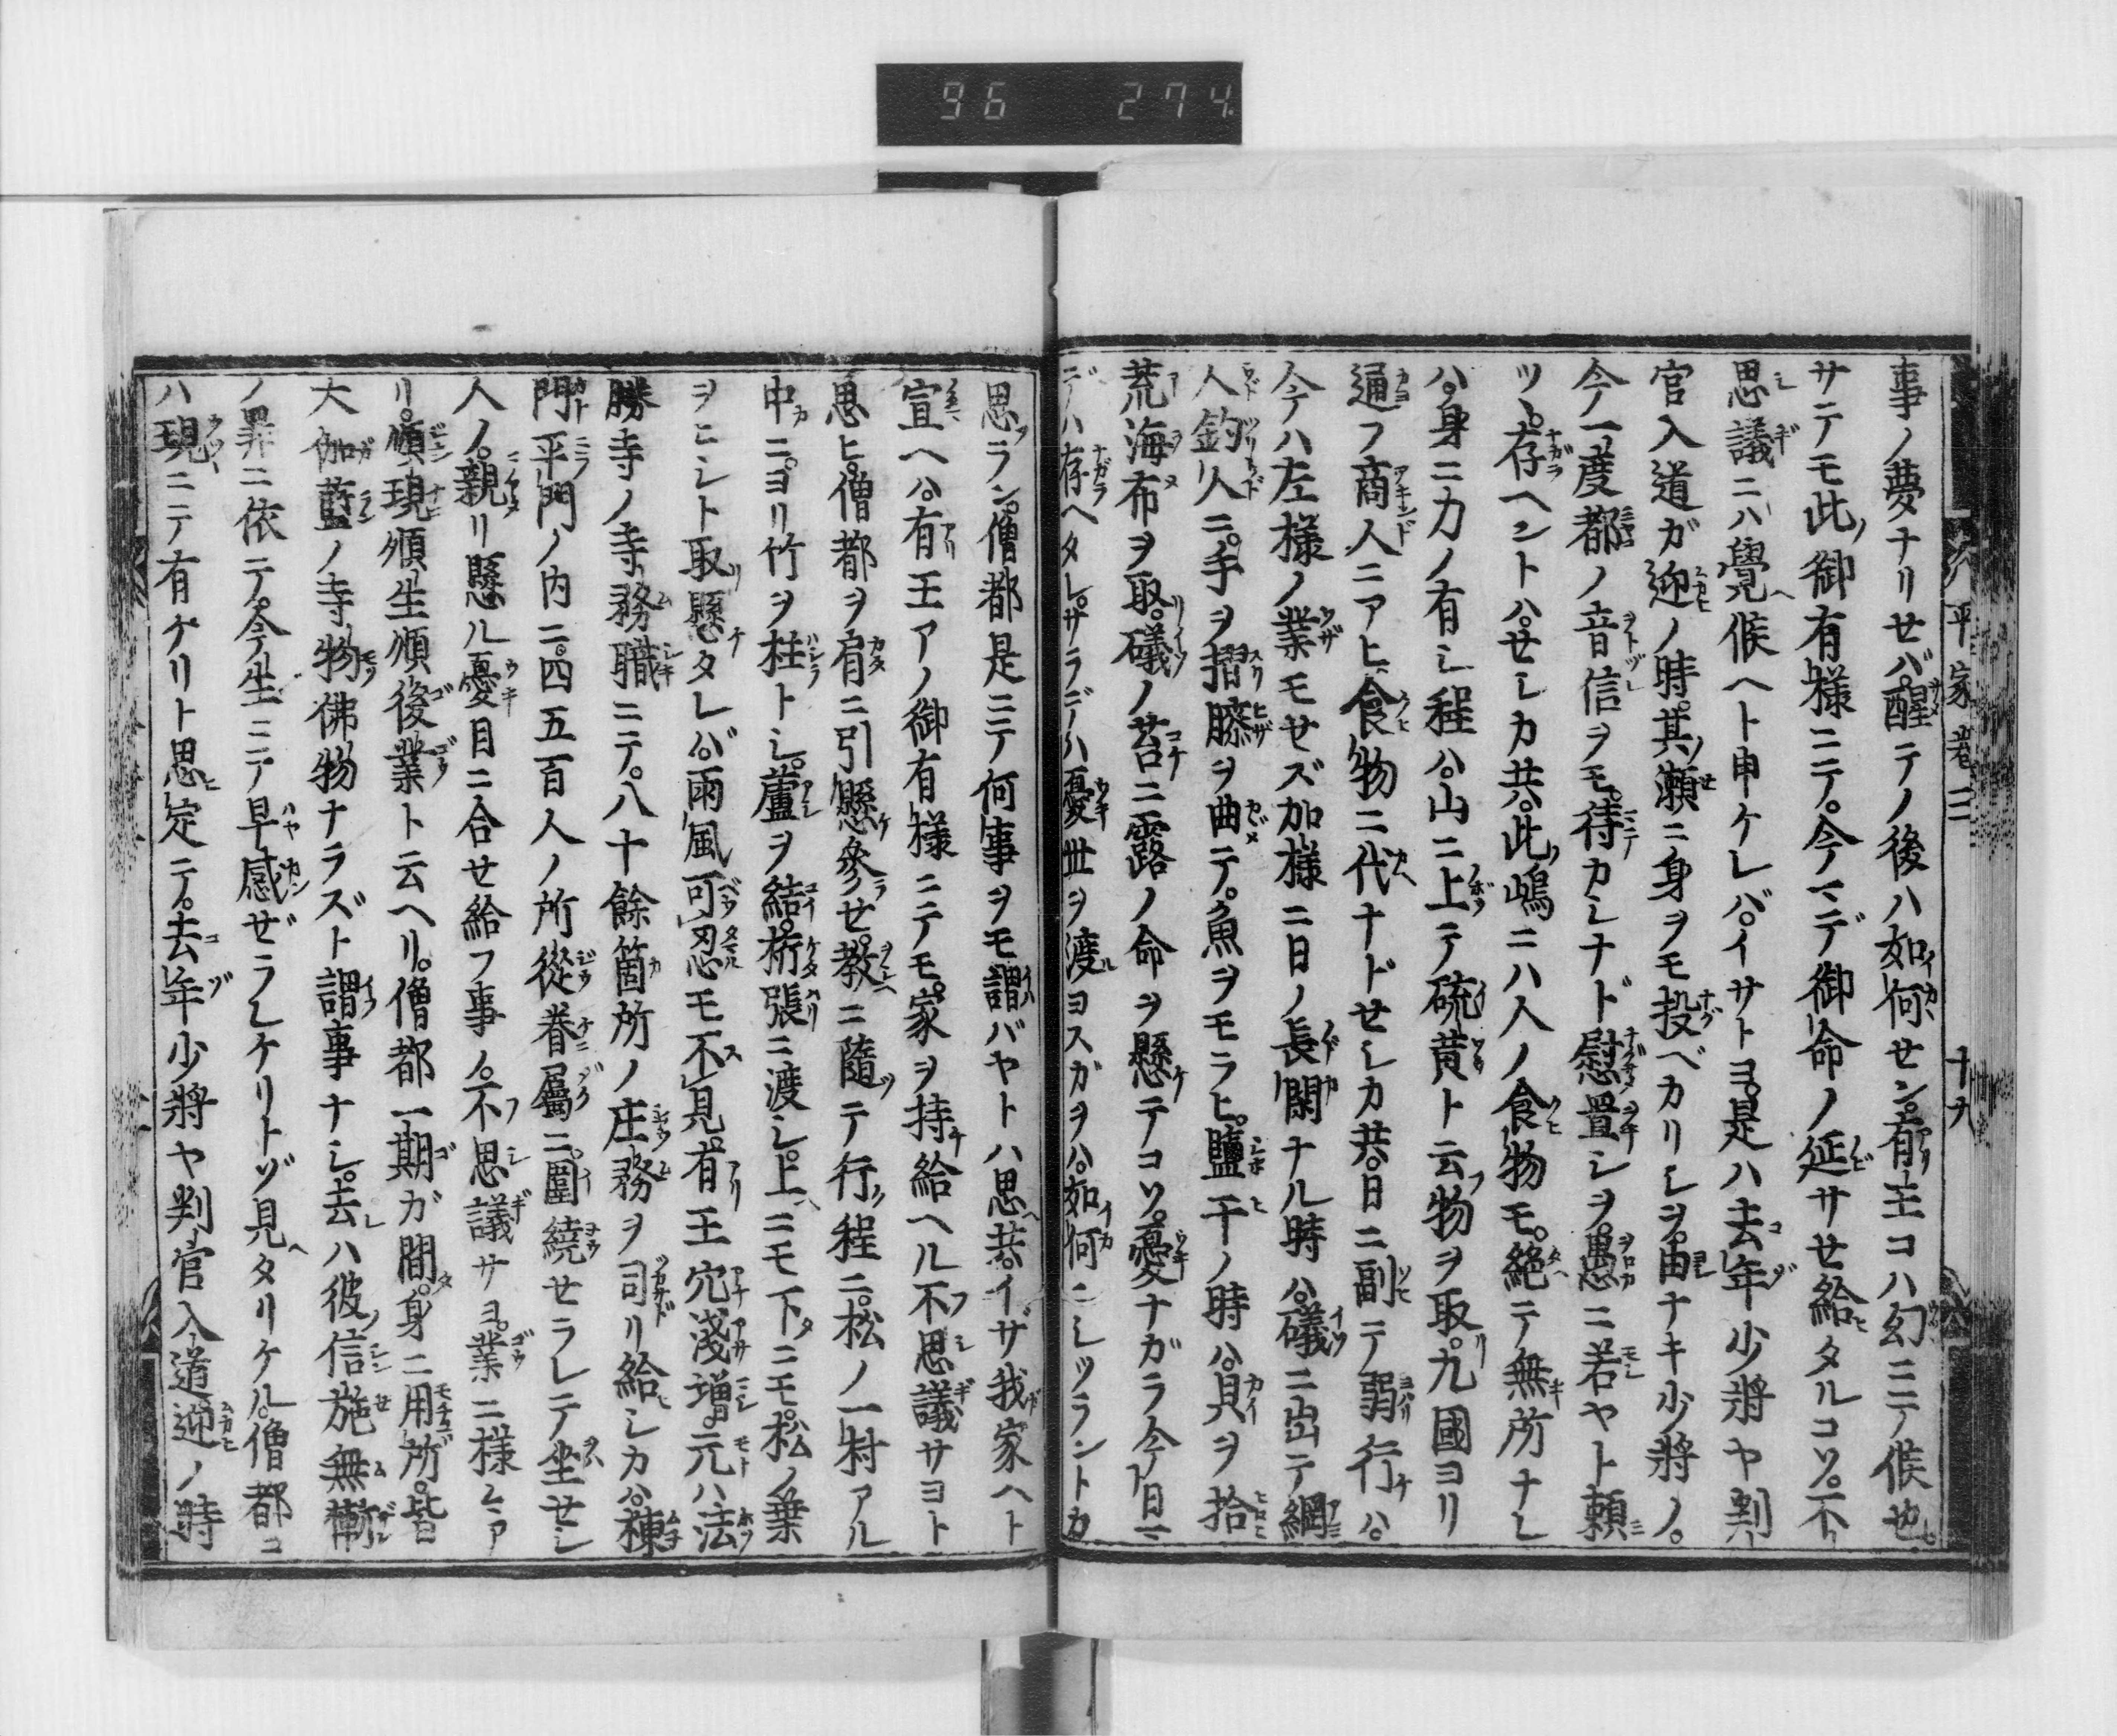 96 274.
平家巻三 十九
事ノ夢ナリせバ。醒テノ後ハ如何せン。有王コハ幻ニテ候也。
サテモ此御有様ニテ。今マデ御命ノ延サせ給タルコソ。不
思議ニハ覺候ヘト申ケレバ。イサトヨ。是ハ去年少將ヤ判
官入道ガ迎ノ時。其瀬ニ身ヲモ投ベカリシヲ。由ナキ少將ノ。
今一度都ノ音信ヲモ。待カシナド慰置シヲ。愚ニ若ヤト頼
ツヽ。存ヘントハ。せシカ共。此嶋ニハ人ノ食物モ。絶テ無所ナレ
ハ。身ニカノ有シ程ハ。山ニ上テ硫黄ト云物ヲ取。九國ヨリ
通フ商人ニアヒ。食物ニ代ナドせシカ共。日ニ副テ弱行ハ。
今ハ左様ノ業モせズ。加様ニ日ノ長閑ナル時ハ。礒ニ出テ網
人釣人ニ。手ヲ摺膝ヲ曲テ。魚ヲモラヒ。鹽干ノ時ハ。貝ヲ拾
荒海布ヲ取。礒ノ苔ニ露ノ命ヲ懸テコソ。憂ナガラ今日マ
デハ存ヘタレ。サラデハ憂世ヲ渡ヨスガヲハ。如何ニシツラントカ
思ラン。僧都是ニテ何事ヲモ謂バヤトハ思共。イザ我家ヘト
宣ヘハ。有王アノ御有様ニテモ。家ヲ持給ヘル不思議サヨト
思ヒ。僧都ヲ肩ニ引懸參せ。教ニ隨テ行程ニ。松ノ一村アル
中ニ。ヨリ竹ヲ柱トシ。蘆ヲ結。桁張ニ渡シ。上ニモ下ニモ。松ノ葉
ヲヒシト取懸タレバ。雨風可忍モ不見。有王穴淺増。元ハ法
勝寺ノ寺務職ニテ。八十餘箇所ノ庄務ヲ司リ給シカハ。棟
門平門ノ内ニ。四五百人ノ所從眷屬ニ。圍繞せラレテ坐せシ
人ノ。親リ懸ル憂目ニ合せ給フ事ノ。不思議サヨ。業ニ様々ア
リ。順現順生順後業ト云ヘリ。僧都一期ガ間。身ニ用所。皆
大伽藍ノ寺物佛物ナラズト謂事ナシ。去レハ彼信施無慚
ノ罪ニ依テ。今生ニテ早感ぜラレケリトゾ見ヘタリケル。僧都コ
ハ現ニテ有ケリト思定テ。去年少將ヤ判官入道迎ノ時